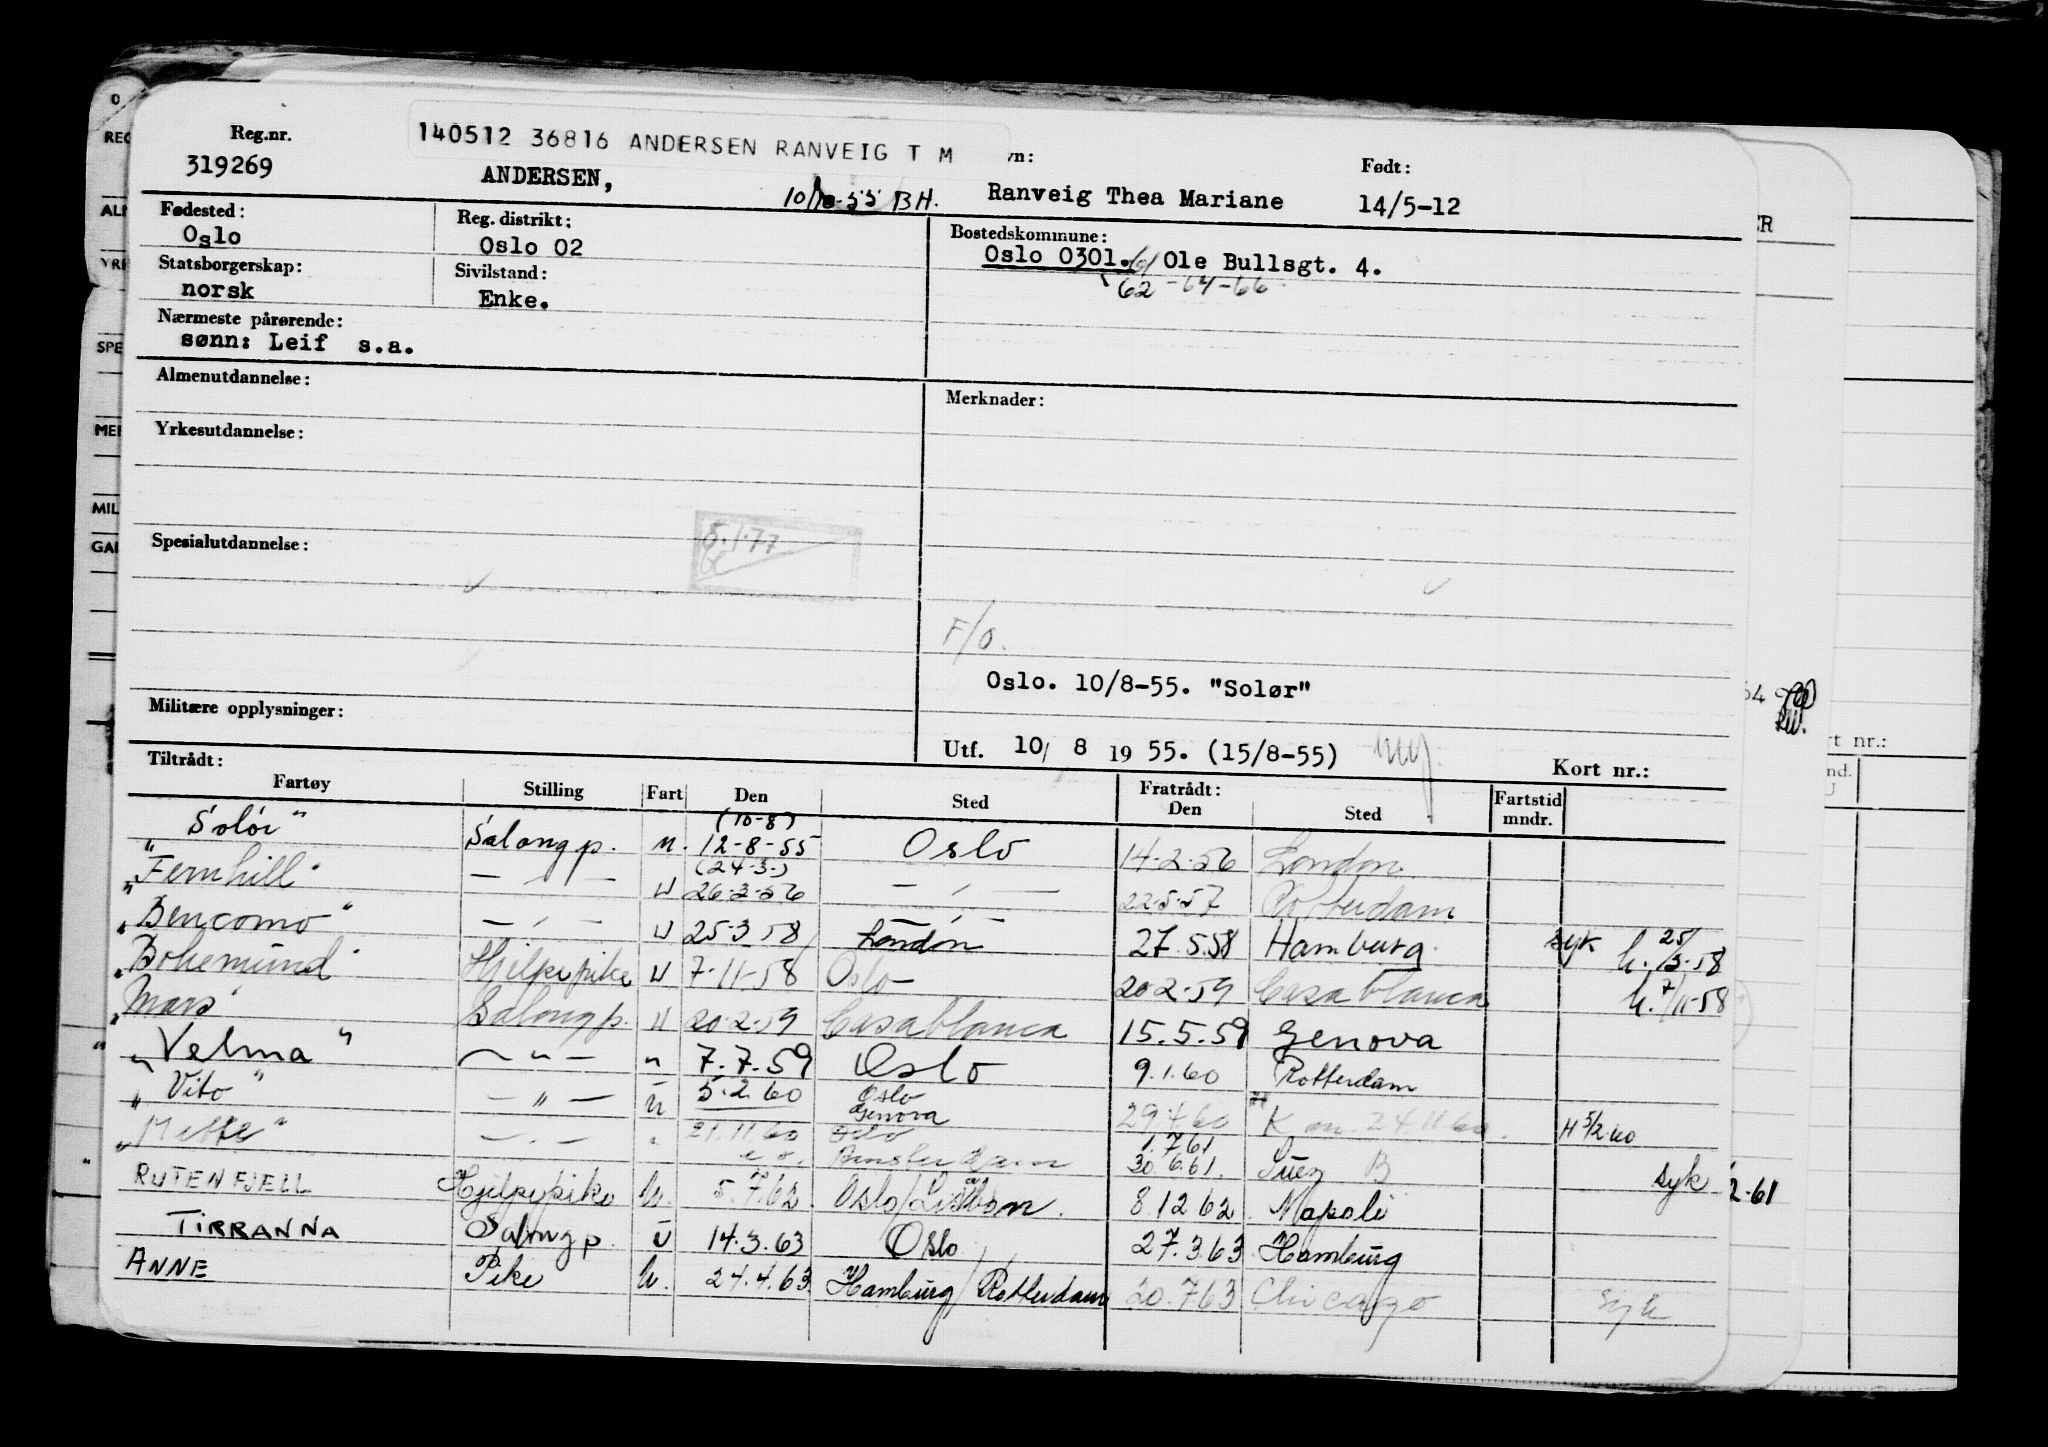 140512 36816 ANDERSEN RANVEIG T M
Reg.nr. vn: Født:
319269 ANDERSEN, 10/8-55 BH. Ranveig Thea Mariane 14/5-12
Fødested: Reg. distrikt: Bostedskommune:
Oslo Oslo 02 Oslo 0301. Ole Bullsgt. 4.
62-64-66
Statsborgerskap: Sivilstand:
norsk Enke.
Nærmeste pårørende:
sønn: Leif s.a.
Almenutdannelse: Merknader:
Yrkesutdannelse:
5.1.77
Spesialutdannelse:
F/O.
Oslo. 10/8-55. "Solør"
Militære opplysninger:
Utf. 10/ 8 1955. (15/8-55)
Tiltrådt: Fratrådt: Kort nr.:
Fartøy Stilling Fart Den Sted Den Sted Fartstid mndr.
(10-8)
"Solør" Salongp. u. 12-8-55 Oslo 14-2-56 London.
(24-3-)
"Fernhill" — " — u 26-3-56 — " — 22-5-57 Rotterdam
"Bencomo" — " — u 25-3-58 London 27.5.58 Hamburg. syk h. 25/3-58
"Bohemund" Hjelpepike u 7-11-58 Oslo 20-2-59 Casablanca h. 7/11-58
"Mars" Salongp. u 20-2-59 Casablanca 15.5.59 Genova
"Velma" — " — " 7.7.59 Oslo 9.1.60 Rotterdam
"Vito" — " — u 5.2.60 Oslo Genova 29.4.60 K an. 24.11.60. H 5/2.60
"Mette" — " — " 21.11.60 Oslo 1.7.61
Amsterdam 30.6.61. Suez B syk 2-61
RUTENFJELL Hjelpepike u. 5.7.62 Oslo/Lisbon. 8.12.62 Napoli
TIRRANNA Salongp. u 14.3.63 Oslo 27.3.63 Hamburg
ANNE Pike u. 24.4.63 Hamburg/Rotterdam 20.7.63 Chicago syk